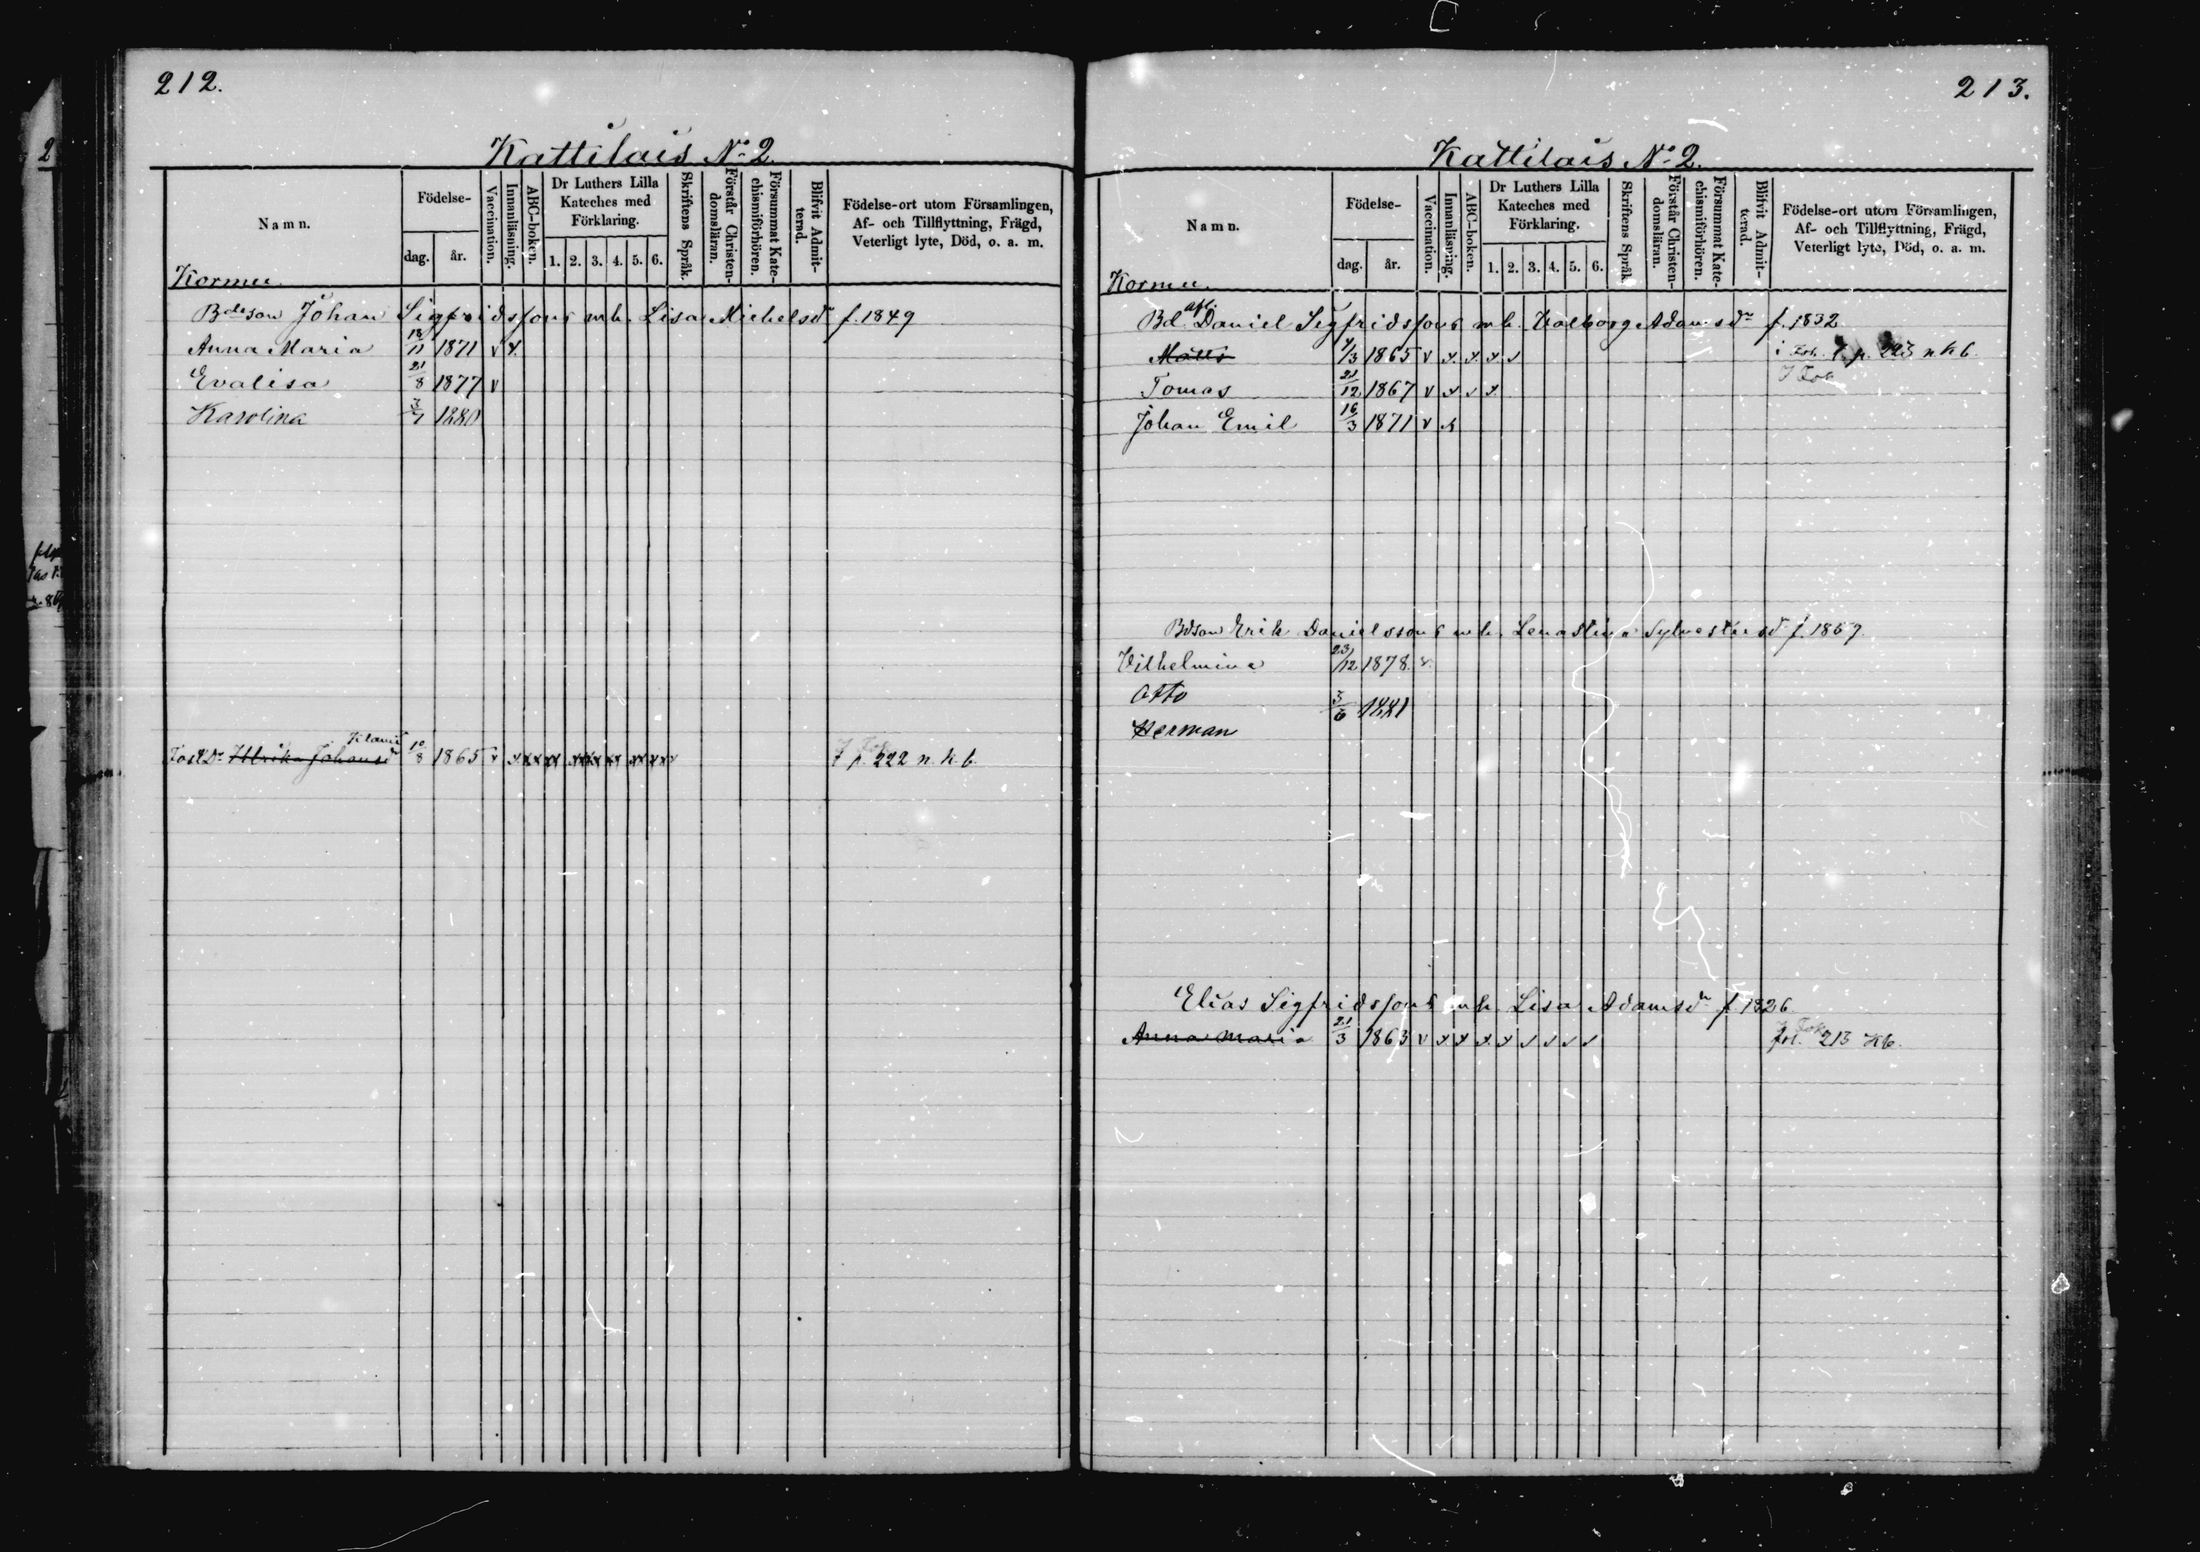 212.
Kattilais No 2.
Namn.
Födelse-
dag.
år.
Vaccination.
Innanläsning.
ABC-boken.
Dr Luthers Lilla Kateches med Förklaring.
1. 2. 3. 4. 5. 6.
Skriftens Språk.
Förstår Christendomsläran.
Försummat Katechismiförhören.
Blifvit Admitterad.
Födelse-ort utom Församlingen,
Af- och Tillflyttning, Frägd,
Veterligt lyte, Död, o. a. m.
Kormu
Bdeson Johan Sigfridssons mh. Lisa Michelsdr f. 1849
Anna Maria 18/11 1871 v x
Evalisa 21/8 1877 v
Karolina 3/7 1880
Ulrika Johansdr 10/8 1865 p. 222 n. k. b.
213.
Kattilais No 2.
Namn.
Födelse-
dag.
år.
Vaccination.
Innanläsning.
ABC-boken.
Dr Luthers Lilla Kateches med Förklaring.
1. 2. 3. 4. 5. 6.
Skriftens Språk
Förstår Christendomsläran.
Försummat Katechismiförhören.
Blifvit Admitterad.
Födelse-ort utom Församlingen,
Af- och Tillflyttning, Frägd,
Veterligt lyte, Död, o. a. m.
Kormu.
Bd. afl. Daniel Sigfridssons mh. Valborg Adamsdr f. 1832
Matts 4/3 1865 v x x x v p. 223 n k b.
Tomas 21/12 1867 v x v x
Johan Emil 16/3 1871 v x
Bdson Erik Danielssons mh. Lenastina Sylvestersdr f. 1859
Vilhelmina 23/12 1878.
Otto 3/6 1881
Herman
Elias Sigfridssons mh. Lisa Adamsdr f. 1826
Anna Maria 21/3 1863 v x x x x v v v v fol. 213 Kb.